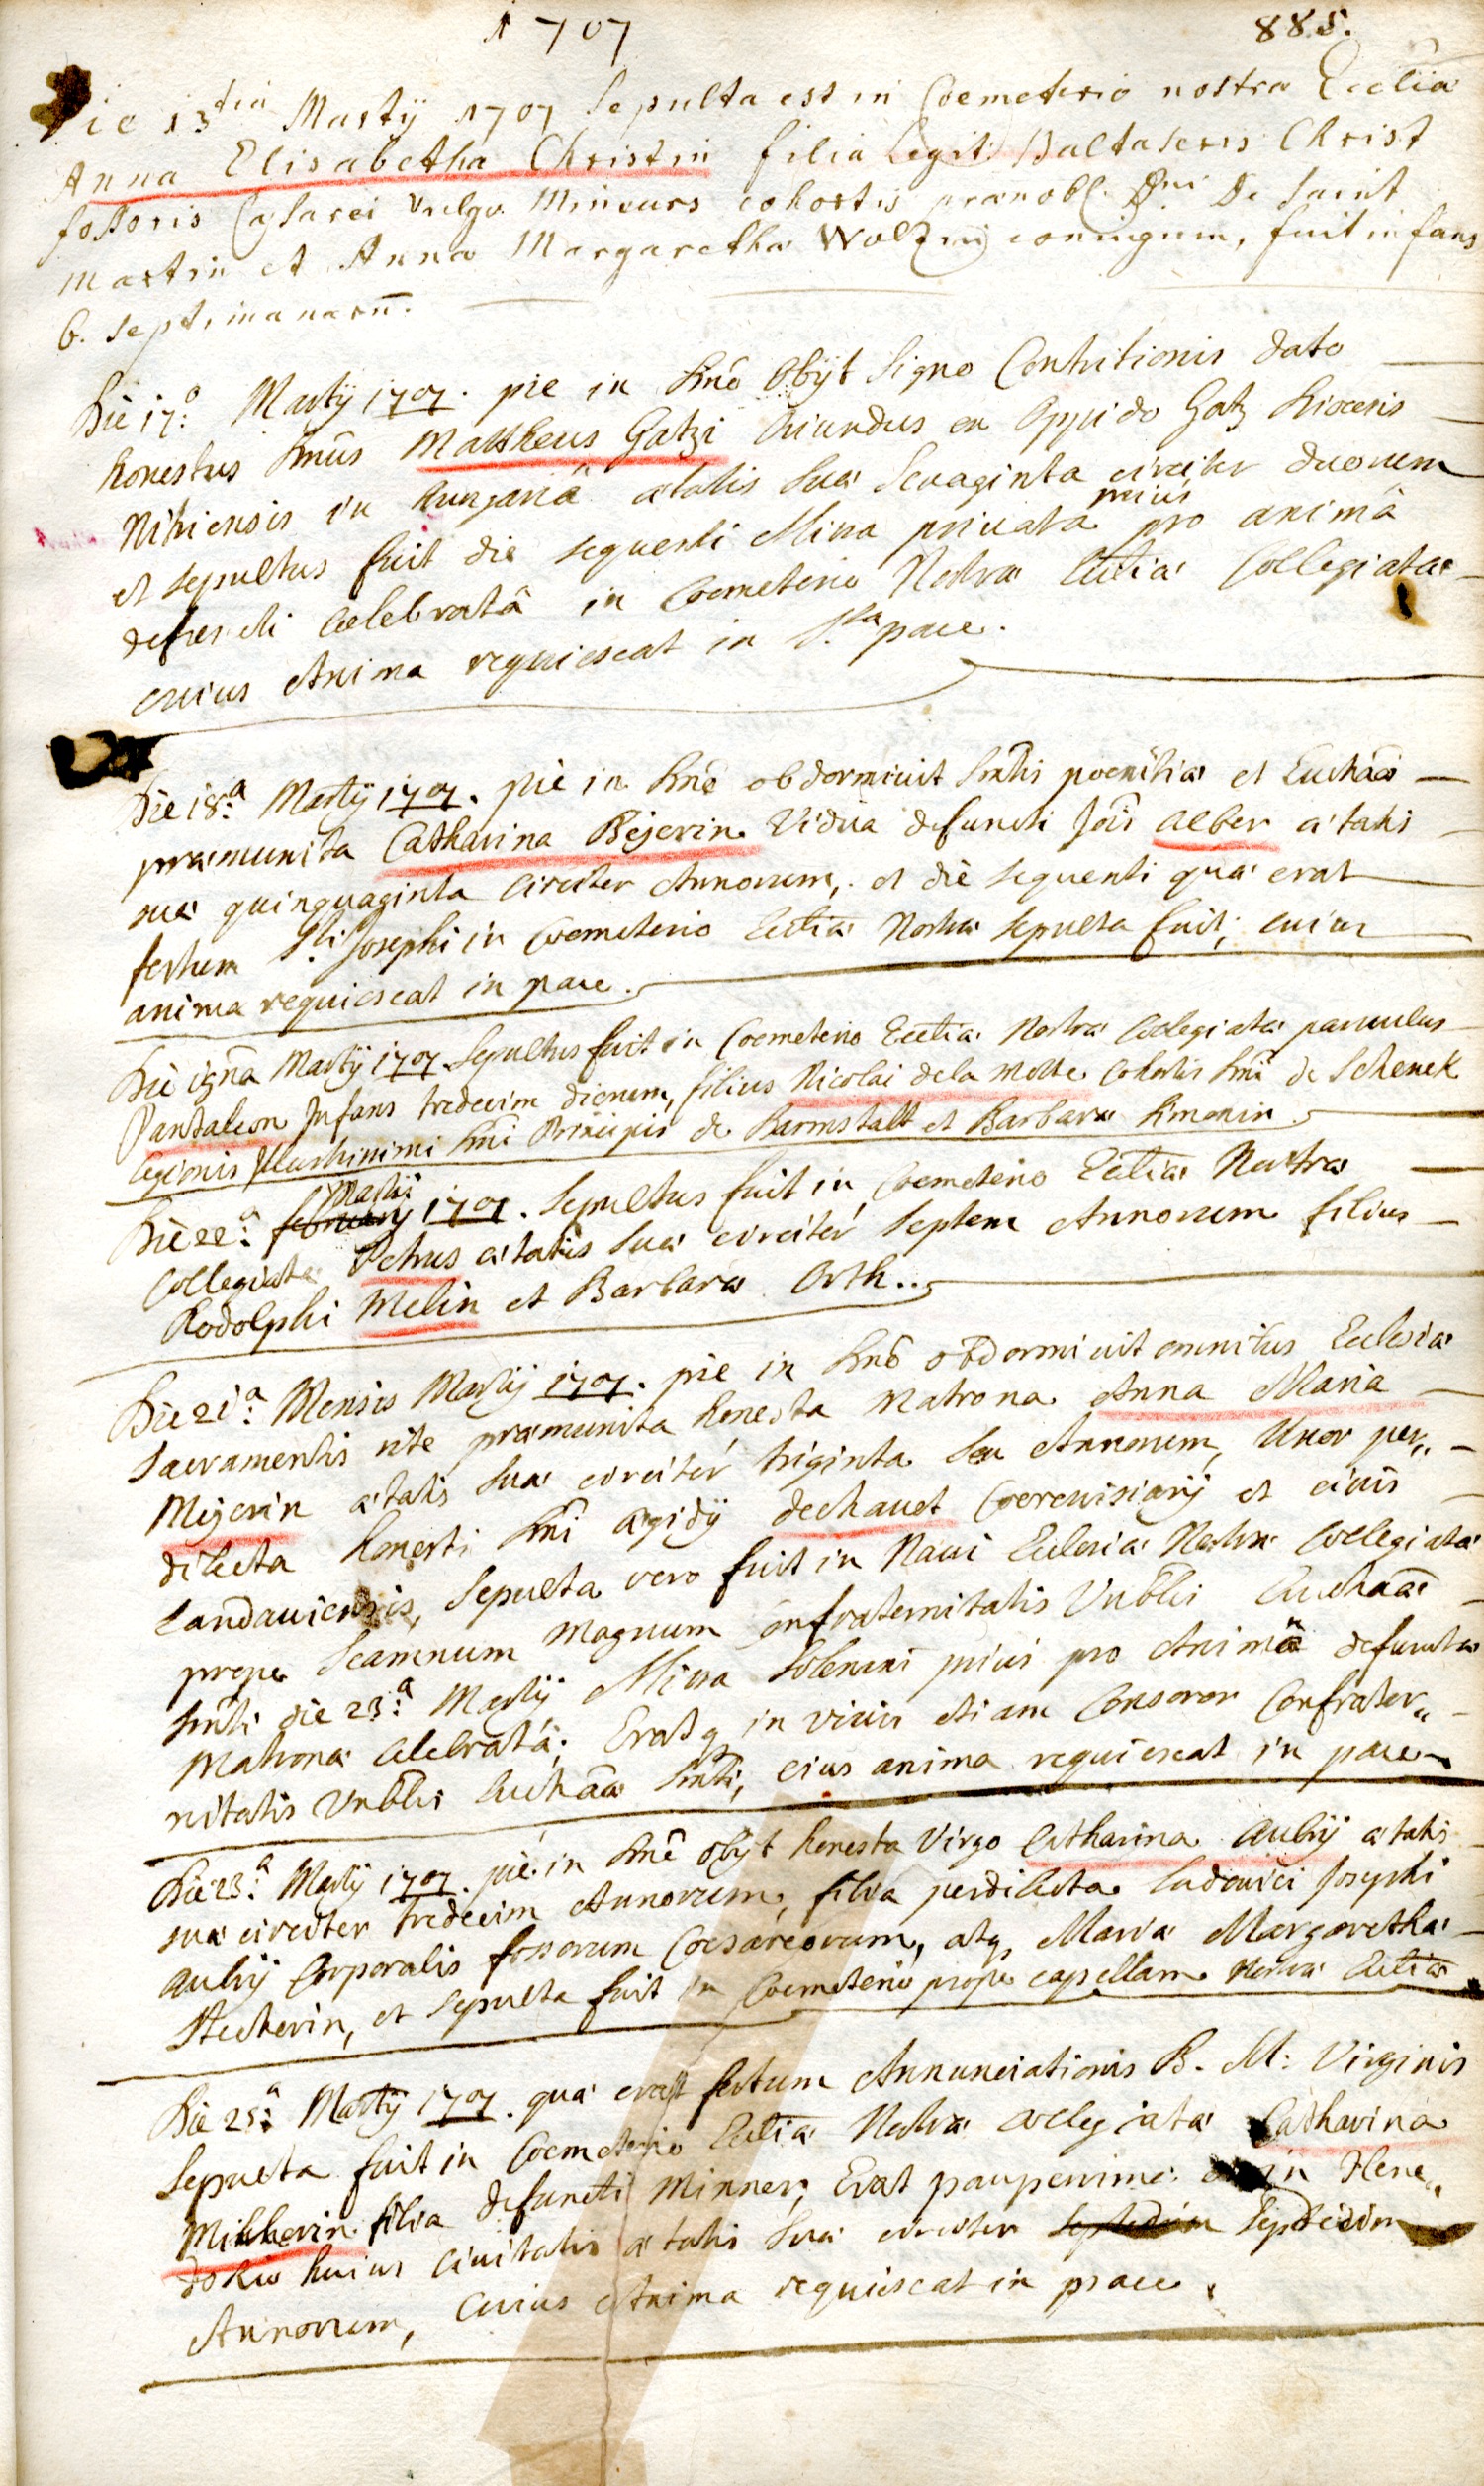 1707
885.
Die 13tia Martij 1707 Sepulta est in Coemeterio nostra Ecclīa
Anna Elisabetha Christin filia legit. Baltaseris Christ
fossoris Cæsarei vulgo Mineurs cohortis prænobl. Dni De Saint
Martin et Anna Margaretha Wolzin coniugum, fuit infans
6. septimanarū.
Die 17.a Martij 1707. pie in Dnō Obijt Signo Contritionis dato
honestus Dnūs Mattheus Gatzi Oriundus ex Oppido Gatz Diocesis
Nitriensis in Hungariâ ætatis Suæ Sexaginta circiter duorum
et sepultus fuit die sequenti Missa privata prius pro animâ
defuncti Celebratâ in Coemeterio Nostræ Ecctiæ Collegiatæ
cuius Anima requiescat in S.ta pace.
Die 18.a Martij 1707. pie in Dnō obdormivit Smtis poenitiæ et Euchāæ
præmunita Catharina Bejerin Vidua defuncti Jōis Alber ætatis
suæ quinquaginta Circiter Annorum, et die sequenti quæ erat
festum S.ti Josephi in Coemeterio Ecctiæ Nostræ sepulta fuit; cuius
anima requiescat in pace.
Die 19nā Martij 1707. Sepultus fuit in Coemeterio Ecctiæ Nostræ Collegiatæ parvulus
Pantaleon Infans tredecim dierum, filius Nicolai dela Motte Cohortis Dnī de Schenck
legionis Illustrissimi Dnī Principis de Darmstatt et Barbara Simonin.
Die 22.a februarij Martij 1707. Sepultus fuit in Coemeterio Ecctiæ Nostræ
Collegiatæ Petrus ætatis Suæ circiter Septem Annorum filius
Rodolphi Melin et Barbaræ Orth..
Die 21.a Mensis Martij 1707. pie in Dnō obdormivit omnibus Ecclesiæ
Sacramentis rite præmunita honesta Matrona Anna Maria
Mejerin ætatis Suæ circiter triginta Sex Annorum, Uxor per„
dilecta honesti Dnī Ægidij dechauet Coerevisiarij et civis
Landauiensis, Sepulta vero fuit in Navi Ecclesiæ Nostræ Collegiatæ
prope Scamnum magnum Confraternitatis Vnblis Euchāæ
Smti die 23.a Martij, Missa Solemni prius pro Animâ defunctæ
Matronæ Celebratâ; Eratq in vivis etiam Consoror Confrater„
nitatis Vnblis Euchāæ Smti; eius anima requiescat in pace
Die 23.a Martij 1707. pie in Dnō obijt honesta Virgo Catharina Aubrij ætatis
suæ circiter tredecim Annorum, filia perdilecta Ludovici Josephi
Aubrij Corporalis fossorum Coesareorum, atq, Maria Margaretha
Stecherin, et Sepulta fuit in Coemeterio prope capellam Nostræ Ecctiæ
Die 25.a Martij 1707. quæ erat festum Annunciationis B. M: Virginis
Sepulta fuit in Coemeterio Ecctiæ Nostræ Collegiatæ Catharina
filia defuncti Minner; Erat pauperrima in Xene„
dochio huius Civitatis ætatis Suæ circiter Septdecim
Annorum, Cuius Anima requiescat in pace.